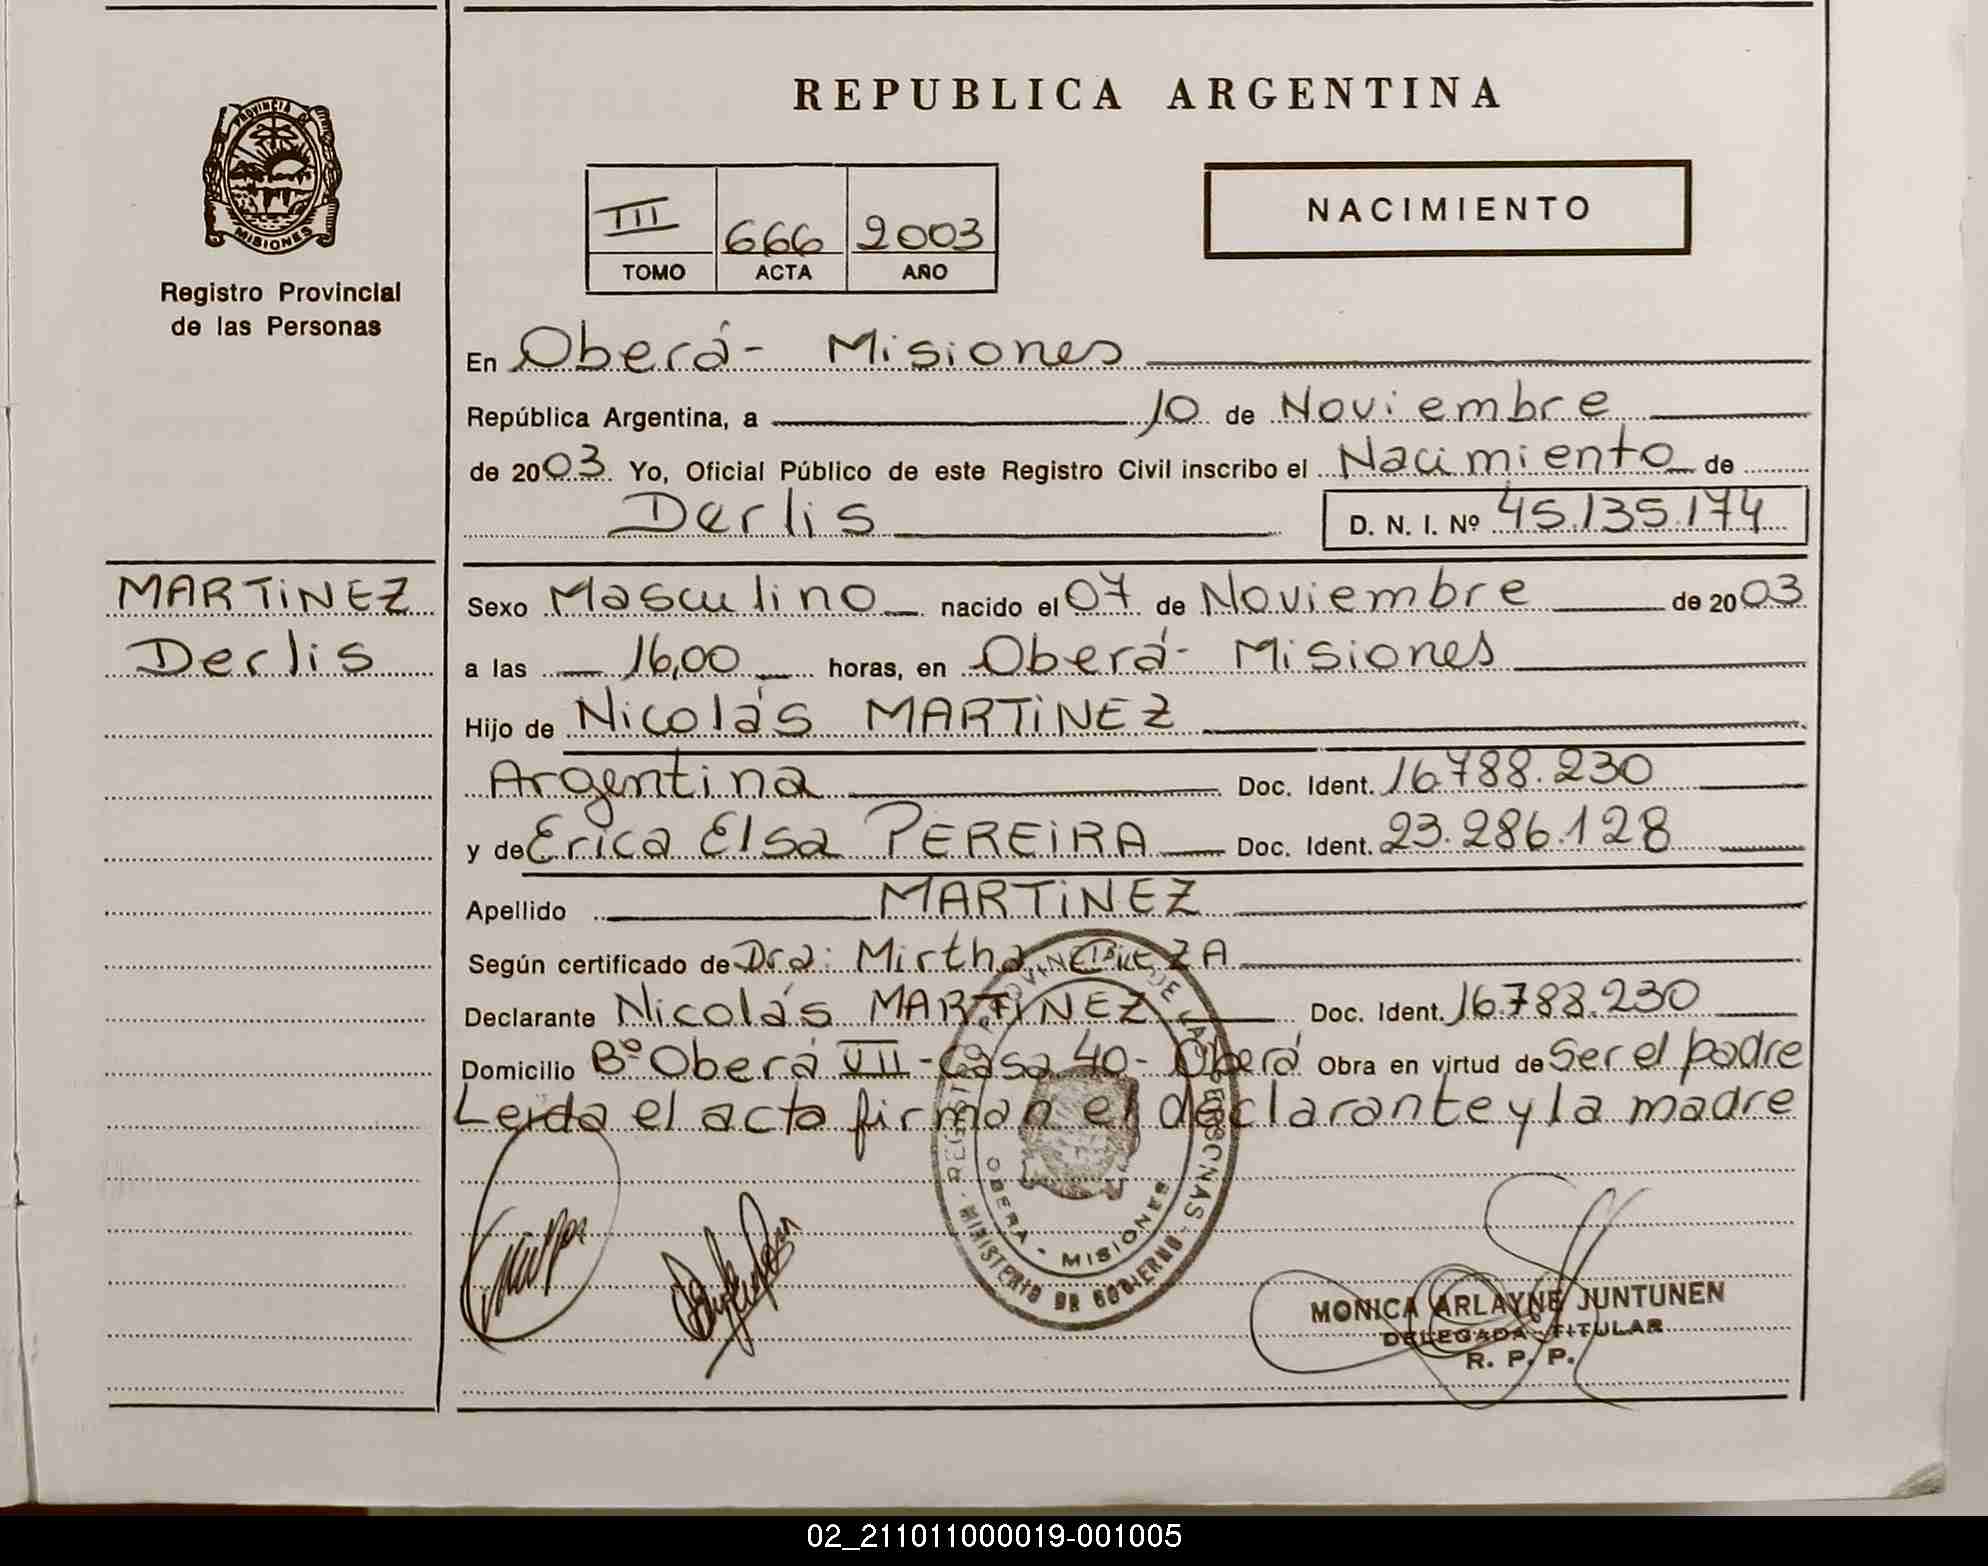 REPUBLICA ARGENTINA
PROVINCIA DE
MISIONES
Registro Provincial
de las Personas
III 666 2003
TOMO ACTA AÑO
NACIMIENTO
En Oberá- Misiones
República Argentina, a 10 de Noviembre
de 2003 Yo, Oficial Público de este Registro Civil inscribo el Nacimiento de
Derlis D. N. I. Nº 45.135.174
MARTiNEZ
Derlis
Sexo Masculino nacido el 07 de Noviembre de 2003
a las 16,00 horas, en Oberá- Misiones
Hijo de Nicolás MARTiNEZ
Argentina Doc. Ident. 16.788.230
y de Erica Elsa PEREiRA Doc. Ident. 23.286.128
Apellido MARTiNEZ
Según certificado de Dra: Mirtha
Declarante Nicolás MARTiNEZ Doc. Ident. 16.788.230
Domicilio Bº Oberá VII - Casa 40- Oberá Obra en virtud de Ser el padre
Leida el acta firman el declarante y la madre
REGISTRO PROVINCIAL DE LAS PERSONAS
OBERA - MISIONES
MINISTERIO DE GOBIERNO
MONICA ARLAYNE JUNTUNEN
DELEGADA TITULAR
R. P. P.
02_211011000019-001005